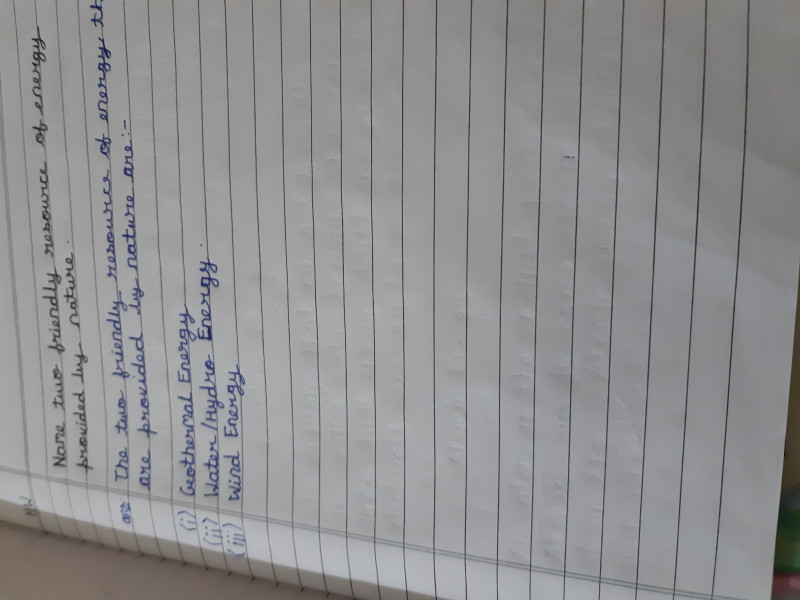 Name two friendly resource of energy
provided by nature.
The two friendly resource of energy th
are provided by nature are:-
(i) Geothermal Energy
(ii) Water/Hydro Energy.
(iii) Wind Energy